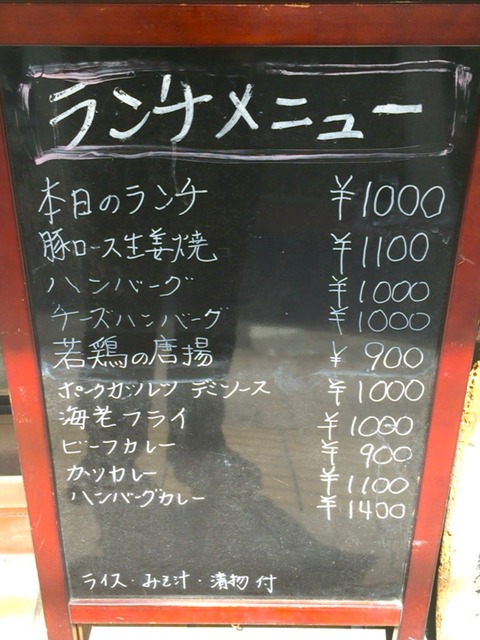 ランチメニュー
本日のランチ ￥1000
豚ロース生姜焼 ￥1100
ハンバーグ ￥1000
チーズハンバーグ ￥1000
若鶏の唐揚 ￥900
ポークカツレツ デミソース ￥1000
海老フライ ￥1000
ビーフカレー ￥900
カツカレー ￥1100
ハンバーグカレー ￥1400
ライス・みそ汁・漬物付